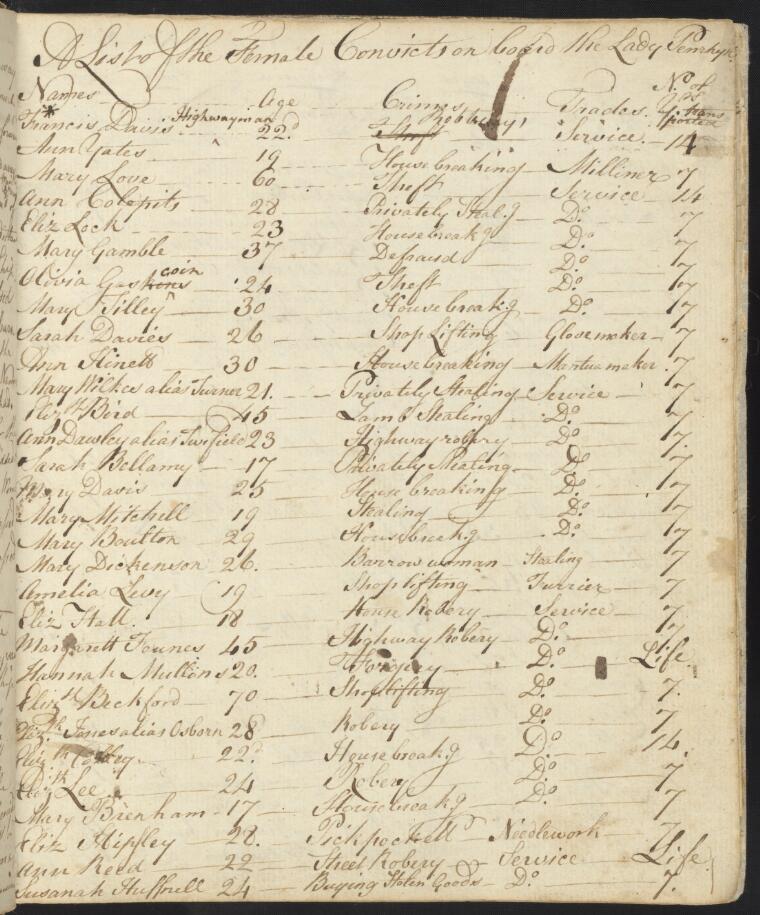 A List of the Female Convicts on board the Lady Penrhyn
Names Age Crimes Trades No. of Yrs transported
* Francis Davis Highwayman 22d Theft robbery Service 14
Ann Yates 19 Housebreaking Milliner 7
Mary Love 60 Theft Service 14
Ann Colepits 28 Privately Steal.g Do. 7
Eliz Lock 23 Housebreak.g Do. 7
Mary Gamble 37 Defraud Do. 7
Olivia Gaskins coin 24 Theft Do. 7
Mary Tilley 30 Housebreak.g Do. 7
Sarah Davies 26 Shop Lifting Glovemaker 7
Ann Hinett 30 Housebreaking Mantua maker 7
Mary Wilkes alias Turner 21. Privately Stealing Service 7
Elizth Bird 45 Lamb Stealing Do. 7
Ann Dawley alias Twifield 23 Highway robery Do. 7
Sarah Bellamy 17 Privately Stealing Do. 7
Mary Davis 25 House breaking Do. 7
Mary Mitchell 19 Stealing Do. 7
Mary Boulton 29 Housebreak.g Do. 7
Mary Dickenson 26. Barrow woman Stealing 7
Amelia Levy 19 Shoplifting Furrier 7
Eliz Hall. 18 House Robery Service 7
Margarett Fownes 45 Highway Robery Do. 7
Hannah Mullens 20. Forgery Do. Life
Elizth Beckford 70 Shoplifting Do. 7.
Elizth Jones alias Osborn 28 Robery Do. 7
Elizth Colley 22d Housebreak.g Do. 14.
Elizth Lee 24 Robery Do. 7
Mary Brenham 17 Housebreak.g Do. 7
Eliz Hipsley 28. Pickpockett Needlework 7
Ann Reed 22 Street Robery Service Life
Susanah Huffnell 24 Buying Stolen Goods Do. 7.